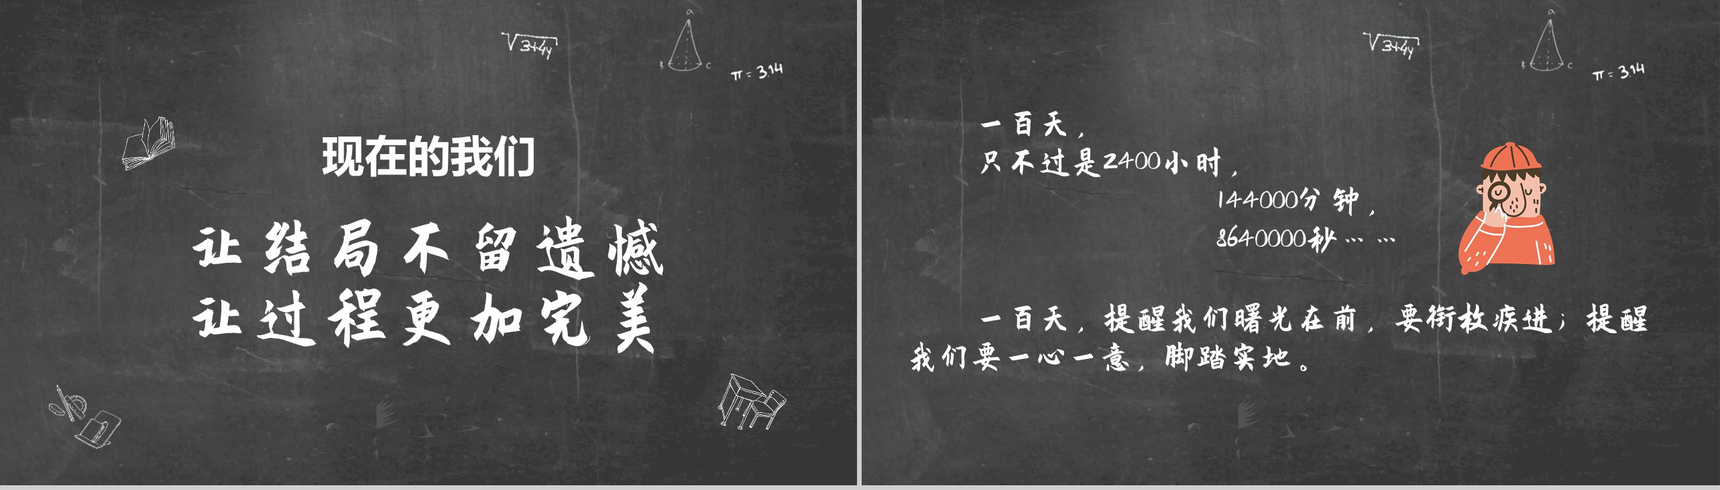 √3+4y
A
B C
π = 3.14
现在的我们
让结局不留遗憾
让过程更加完美
√3+4y
A
B C
π = 3.14
一百天，
只不过是2400小时，
144000分钟，
8640000秒……
一百天，提醒我们曙光在前，要衔枚疾进；提醒
我们要一心一意，脚踏实地。